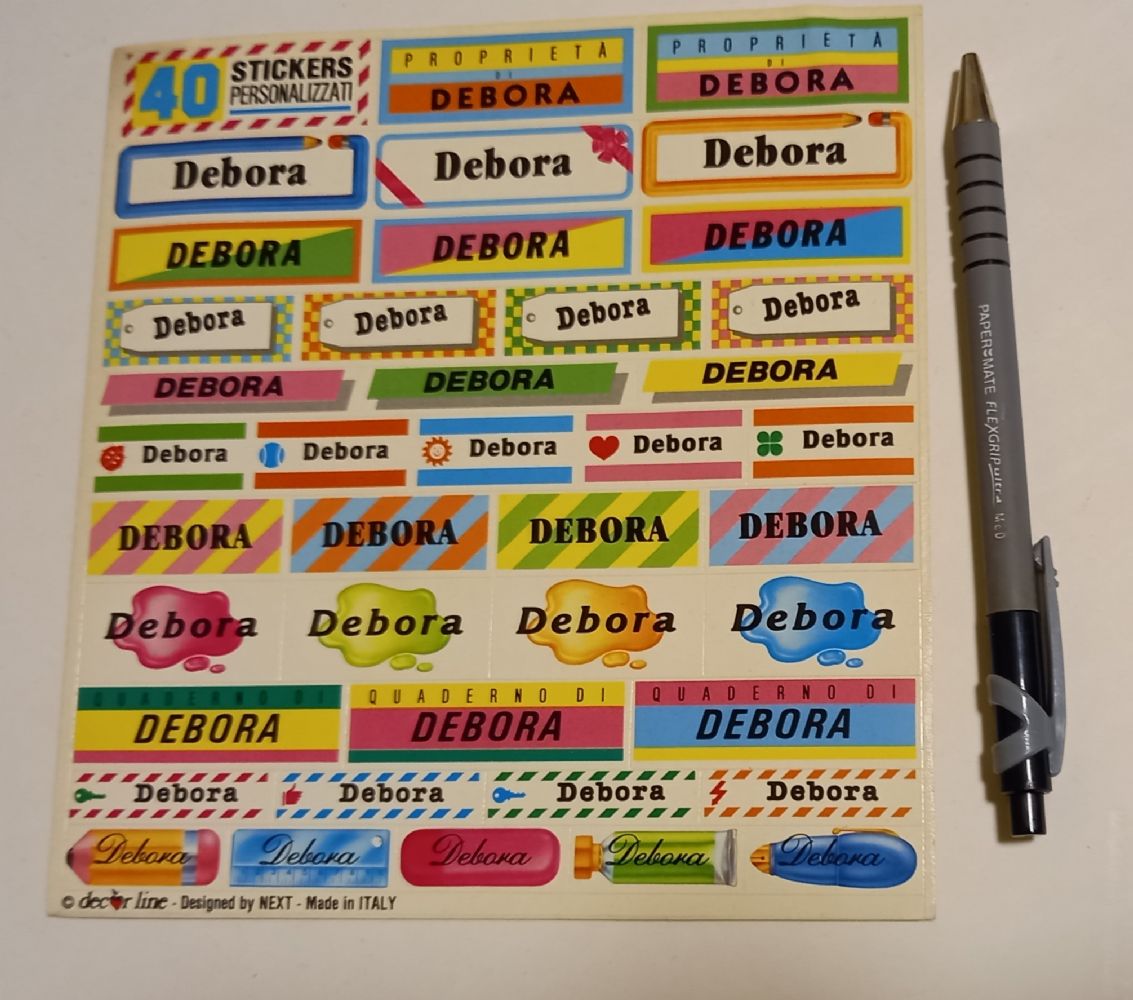 40 STICKERS
PERSONALIZZATI
PROPRIETÀ
DI
DEBORA
PROPRIETÀ
DI
DEBORA
Debora
Debora
Debora
DEBORA
DEBORA
DEBORA
Debora
Debora
Debora
Debora
DEBORA
DEBORA
DEBORA
Debora
Debora
Debora
Debora
Debora
DEBORA
DEBORA
DEBORA
DEBORA
Debora
Debora
Debora
Debora
QUADERNO DI
DEBORA
QUADERNO DI
DEBORA
QUADERNO DI
DEBORA
Debora
Debora
Debora
Debora
Debora
Debora
Debora
Debora
Debora
© decor line - Designed by NEXT - Made in ITALY
PAPER MATE FLEXGRIP ultra